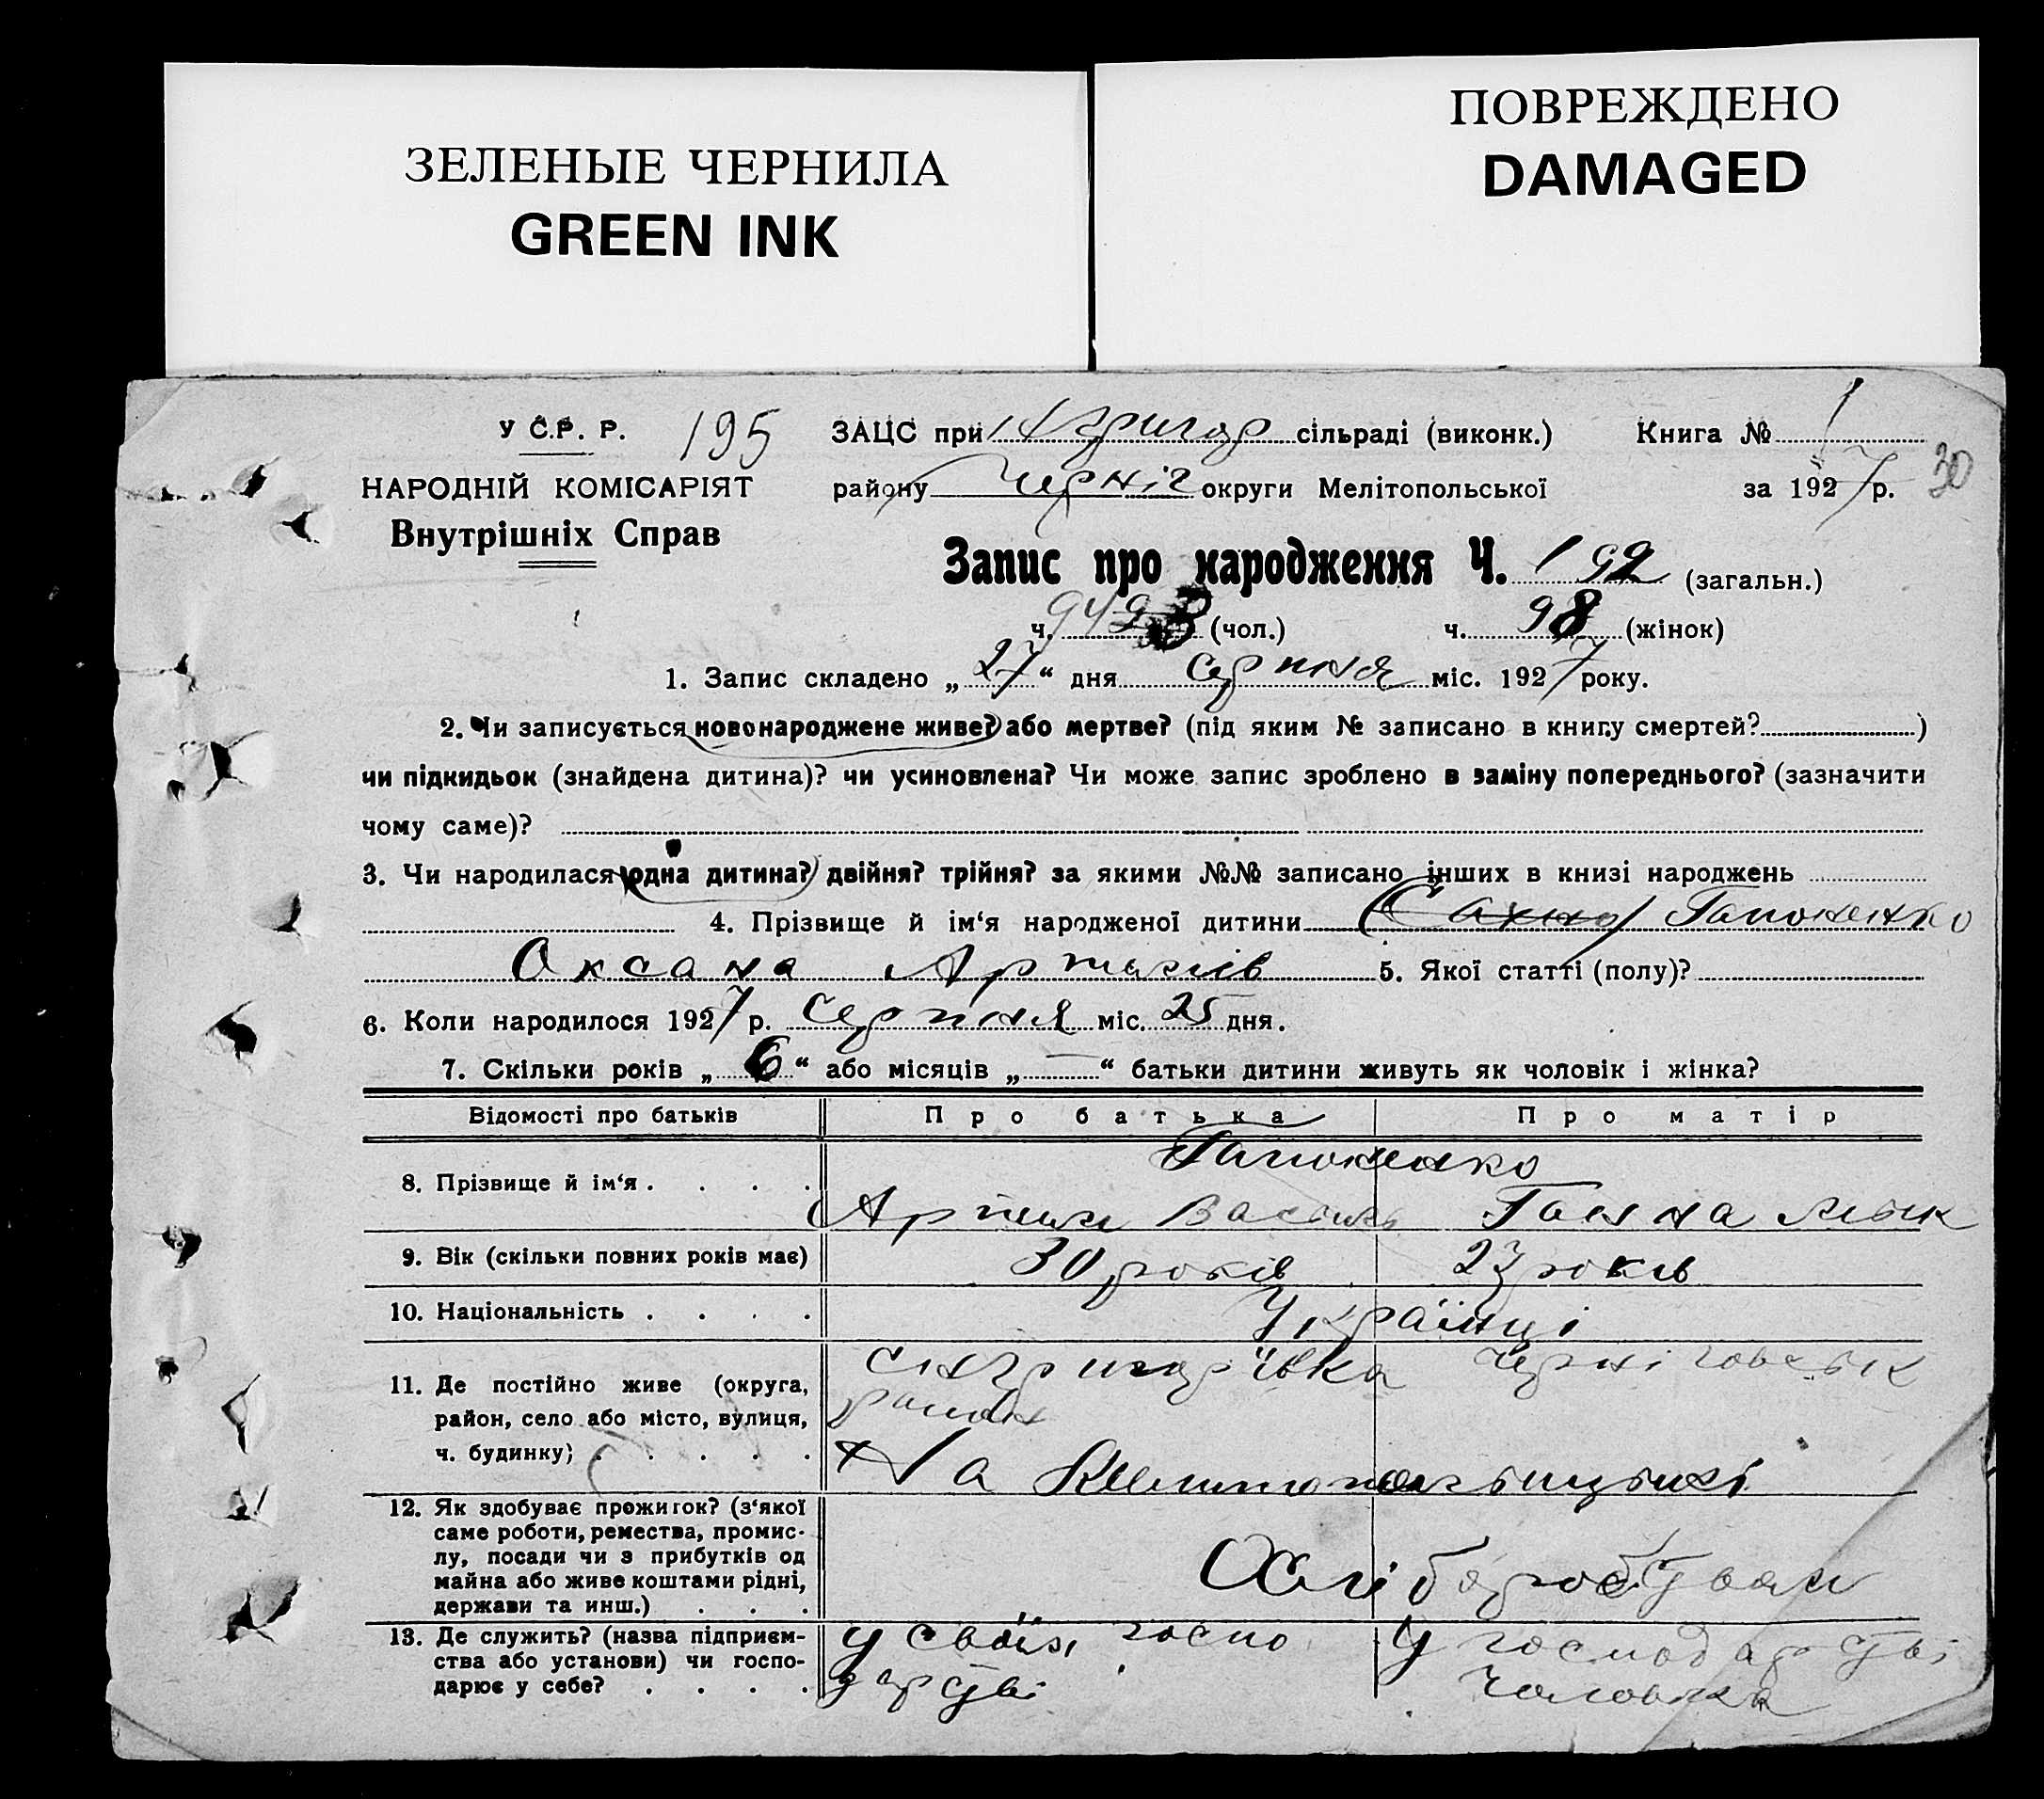 ЗЕЛЕНЫЕ ЧЕРНИЛА
GREEN INK
ПОВРЕЖДЕНО
DAMAGED
У С.Р. Р. 195 ЗАЦС при сільраді (виконк.) Книга № 1
30
НАРОДНІЙ КОМІСАРІЯТ району Черніг округи Мелітопольської за 1927 р.
Внутрішніх Справ
Запис про народження Ч. 192 (загальн.)
ч. (чол.) ч. 98 (жінок)
1. Запис складено „27“ дня серпня міс. 1927 року.
2. Чи записується новонароджене живе? або мертве? (під яким № записано в книгу смертей? )
чи підкидьок (знайдена дитина)? чи усиновлена? Чи може запис зроблено в заміну попереднього? (зазначити
чому саме)?
3. Чи народилася одна дитина? двійня? трійня? за якими №№ записано інших в книзі народжень
4. Прізвище й ім‘я народженої дитини (Сахно) Гапоненко
Оксана 5. Якої статті (полу)?
6. Коли народилося 1927 р. серпня міс. 25 дня.
7. Скільки років „6“ або місяців „—“ батьки дитини живуть як чоловік і жінка?
Відомості про батьків Про батька Про матір
Гапоненко
8. Прізвище й ім‘я . . . . Артем Василь Ганна
9. Вік (скільки повних років має) 30 років 23 років
10. Національність . . . . Українці
11. Де постійно живе (округа, Черніговськ
район, село або місто, вулиця, район
ч. будинку) . . . . . На Мелітопольщині
12. Як здобуває прожиток? (з‘якої
саме роботи, ремества, промис-
лу, посади чи з прибутків од
майна або живе коштами рідні, Хліборобством
держави та инш.) . . .
13. Де служить? (назва підприєм- у своїм госпо у господарстві
ства або установи) чи госпо- дарстві чоловіка
дарює у себе? . . . .